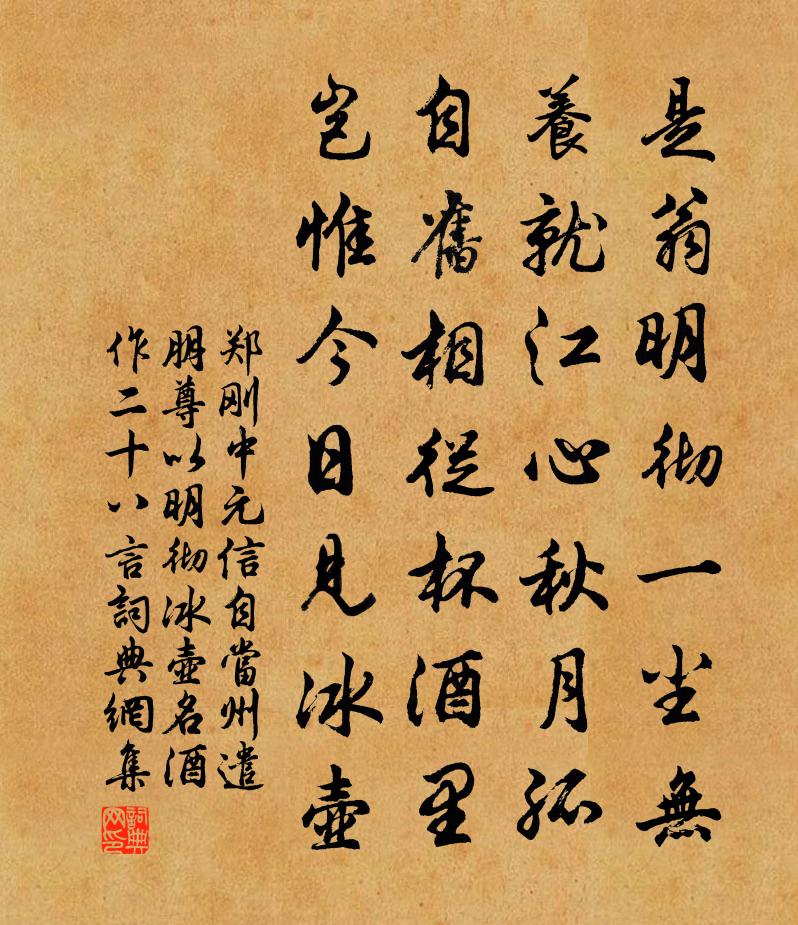 是翁明彻一尘無
養就江心秋月孤
自舊相從杯酒里
岂惟今日見冰壺
郑刚中元信自當州遣
朋尊以明彻冰壺名酒
作二十八言詞典網集
詞典
网印